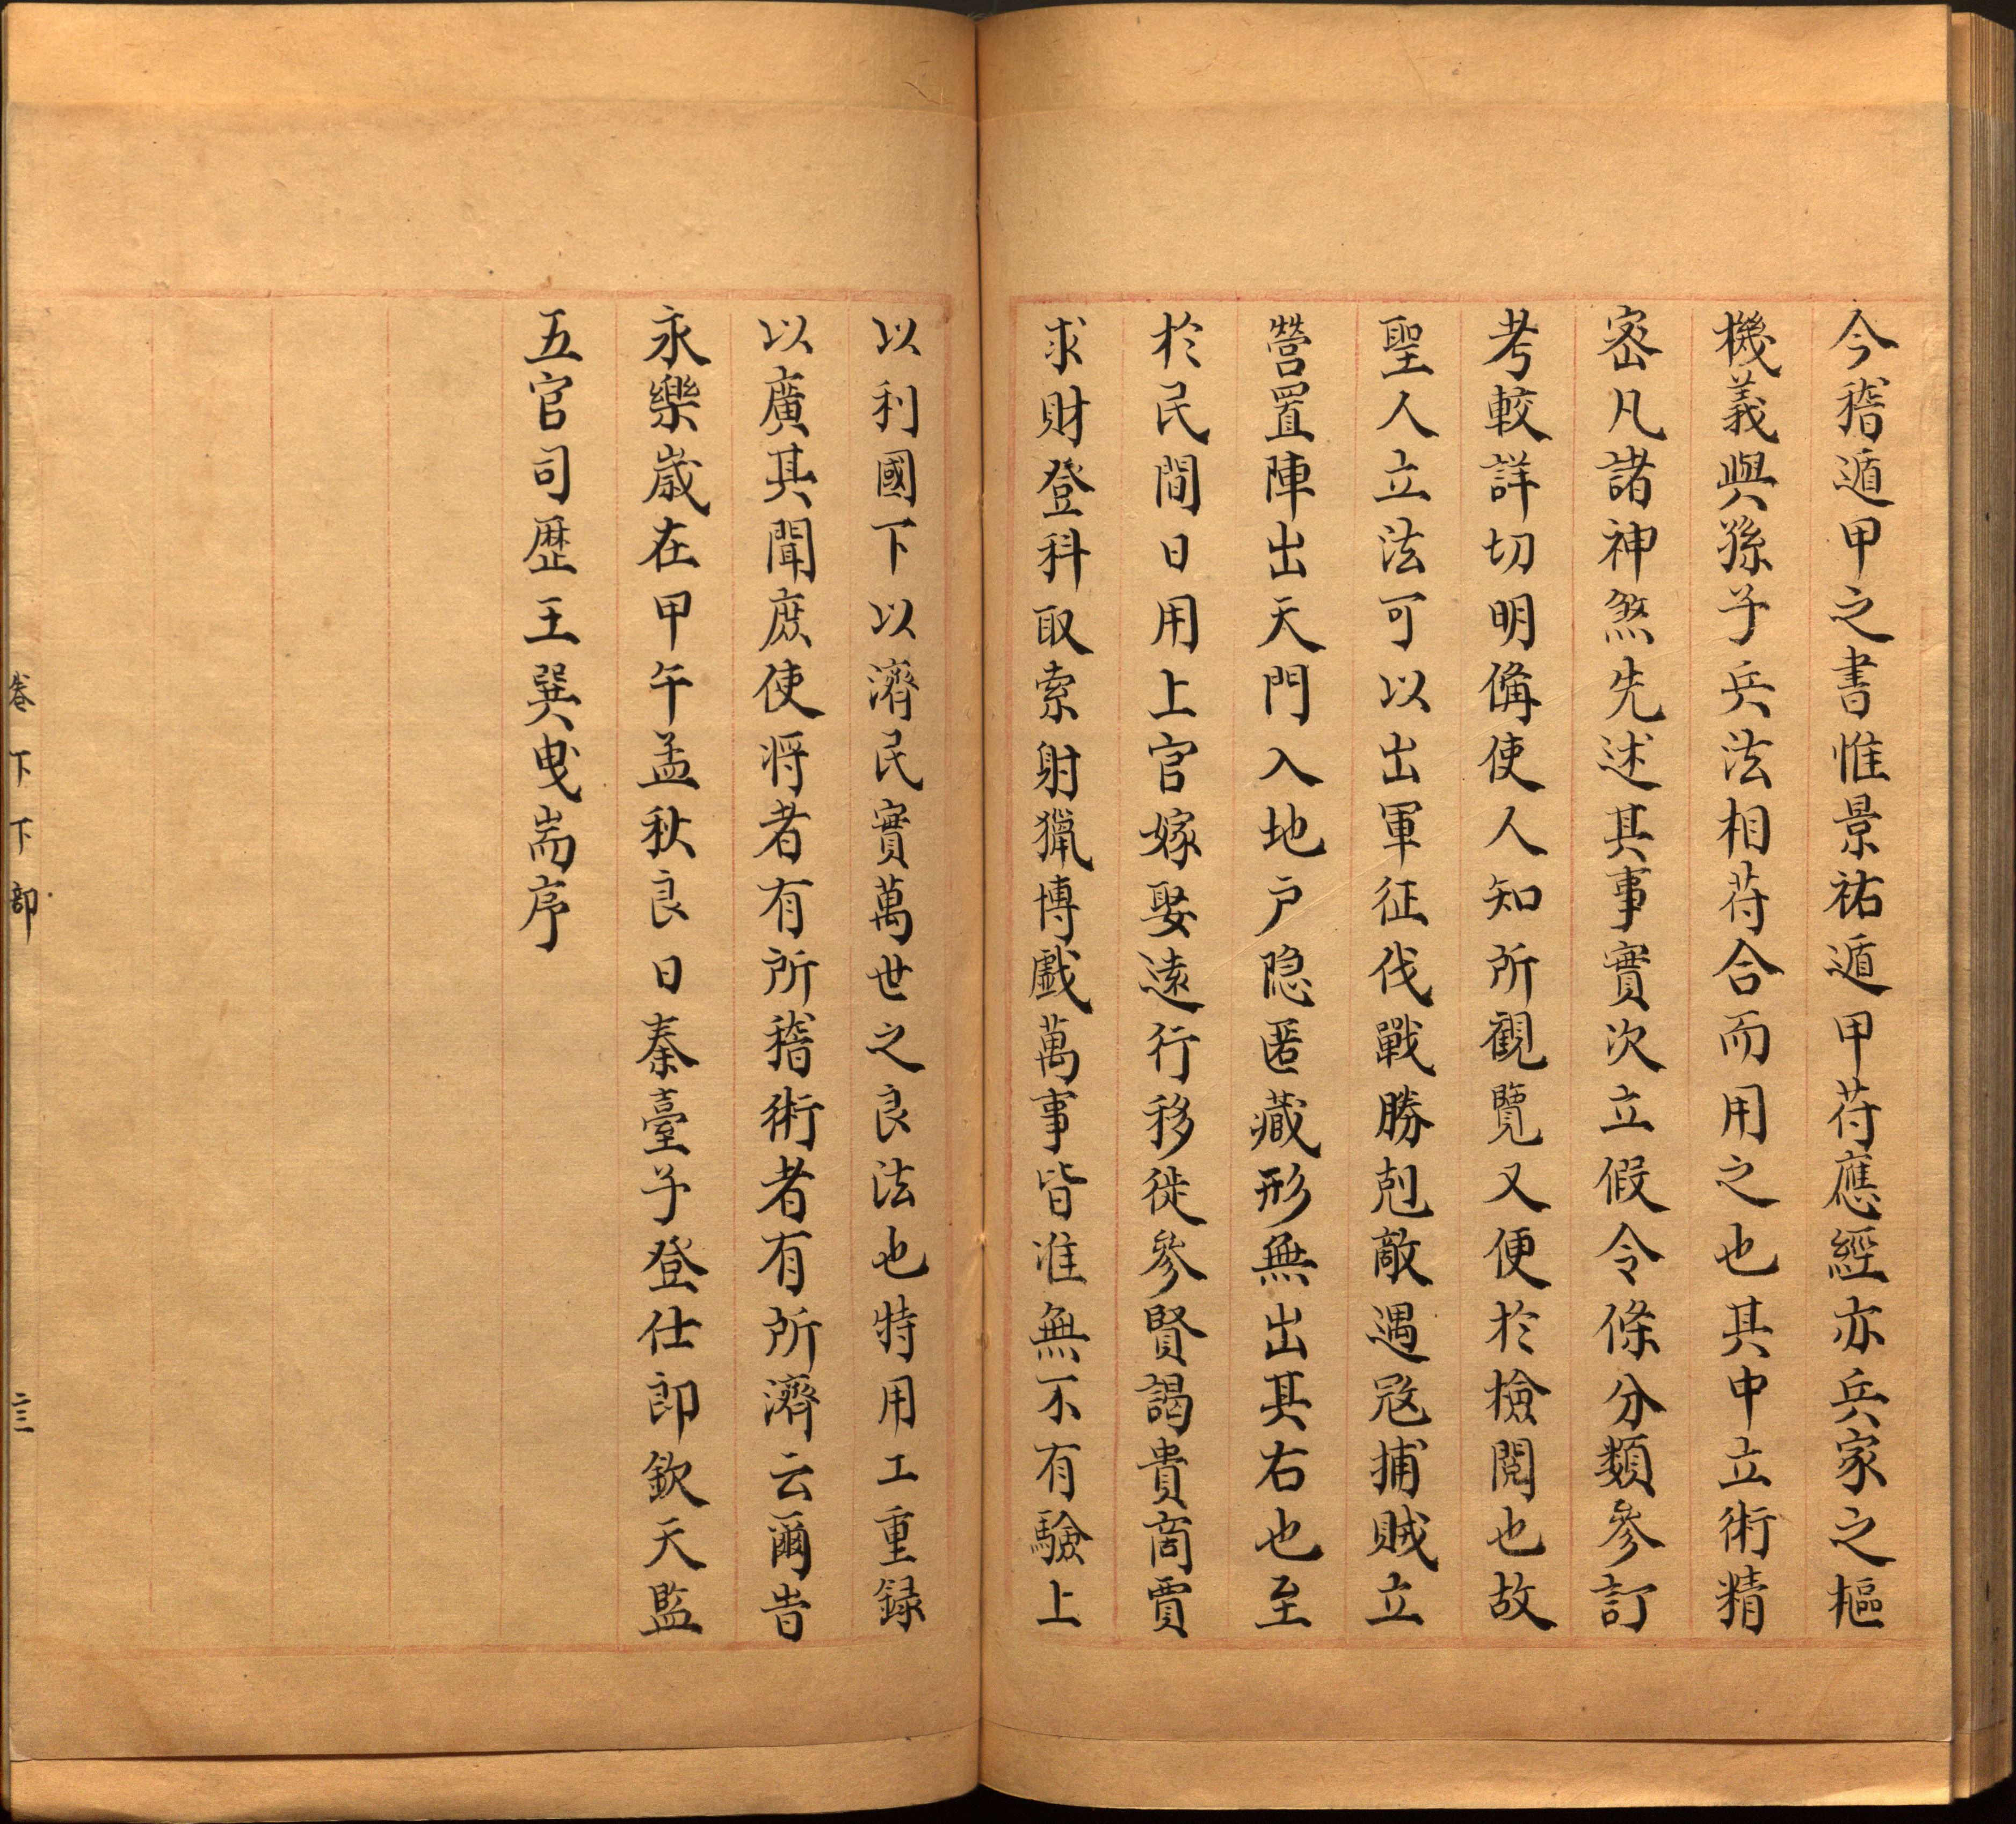 今稽遁甲之書惟景祐遁甲苻應經亦兵家之樞
機義與孫子兵法相苻合而用之也其中立術精
宻凡諸神煞先述其事實次立假令條分類參訂
考較詳切明偹使人知所觀覽又便於檢閱也故
聖人立法可以出軍征伐戰勝剋敵遇宼捕賊立
營置陣出天門入地户隐匿藏形無出其右也至
於民間日用上官嫁娶逺行移徙參賢謁貴商賈
求財登科取索射獵博戲萬事皆准無不有驗上
以利國下以濟民實萬世之良法也特用工重録
以廣其聞庶使将者有所稽術者有所濟云爾旹
永樂歲在甲午孟秋良日秦臺子登仕郎欽天監
五官司歷王巽曳耑序
卷下下部
二三